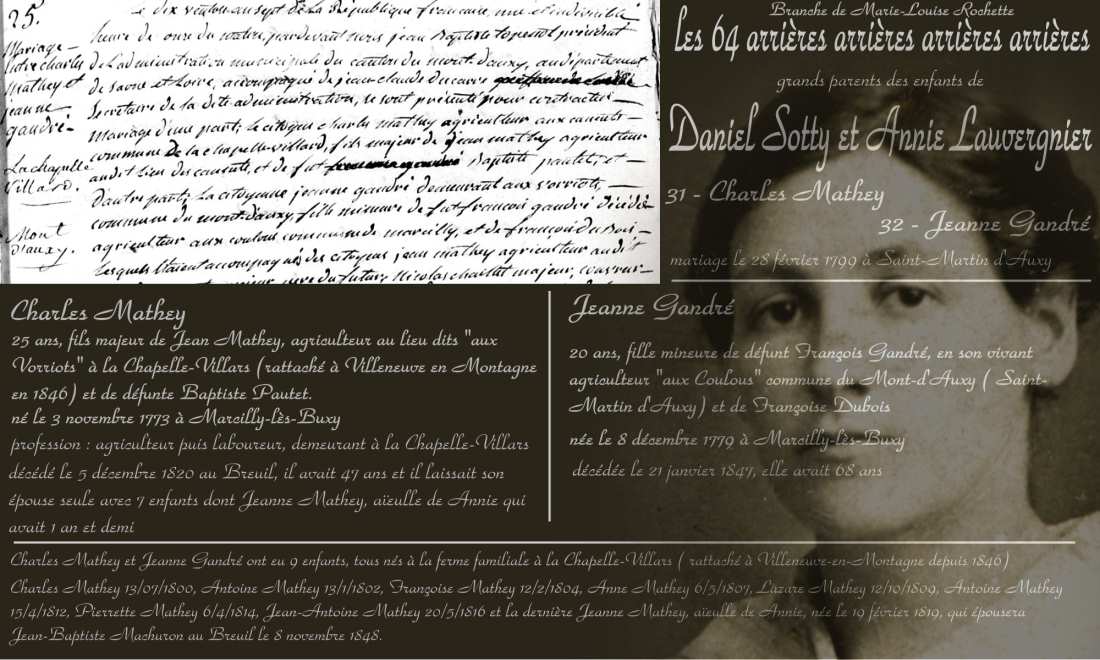 25.
Mariage
charles
mathey et
jeanne
gaudré
La chapelle
Villard.
Mont
d'auxy.
Le dix ventose an sept de la République française, une et indivisible
heure de onze du matin, pardevant nous jean Baptiste président
de L'administration municipale du canton du mont-d'auxy, au département
de saone et Loire, accompagné de jean claude ducarre
Secrétaire de la dite administration, se sont présenté pour contracter
mariage d'une part, Le citoyen charles mathey agriculteur aux
commune de la chapelle-villard, fils majeur de jean mathey agriculteur
au dit Lieu des et de fut Baptiste pautet, et
D'autre part, La citoyenne jeanne gaudré demeurant aux
commune du mont-d'auxy, fille mineure de fut françois gaudré décédé
agriculteur aux coulous commune de marcilly, et de françoise du Boi-
Lesquels étaient accompagnés des citoyens jean mathey agriculteur au dit
du futur, Nicolas majeur,
Branche de Marie-Louise Rochette
les 64 arrières arrières arrières arrières
grands parents des enfants de
Daniel Sotty et Annie Lauvergnier
31 - Charles Mathey
32 - Jeanne Gandré
mariage le 28 février 1799 à Saint-Martin d'Auxy
Charles Mathey
25 ans, fils majeur de Jean Mathey, agriculteur au lieu dits "aux
Vorriots" à la Chapelle-Villars (rattaché à Villeneuve en Montagne
en 1846) et de défunte Baptiste Pautet.
né le 3 novembre 1773 à Marcilly-lès-Buxy
profession : agriculteur puis laboureur, demeurant à la Chapelle-Villars
décédé le 5 décembre 1820 au Breuil, il avait 47 ans et il laissait son
épouse seule avec 7 enfants dont Jeanne Mathey, aïeulle de Annie qui
avait 1 an et demi
Jeanne Gandré
20 ans, fille mineure de défunt François Gandré, en son vivant
agriculteur "aux Coulous" commune du Mont-d'Auxy ( Saint-
Martin d'Auxy) et de Françoise Dubois
née le 8 décembre 1779 à Marcilly-lès-Buxy
décédée le 21 janvier 1847, elle avait 68 ans
Charles Mathey et Jeanne Gandré ont eu 9 enfants, tous nés à la ferme familiale à la Chapelle-Villars ( rattaché à Villeneuve-en-Montagne depuis 1846)
Charles Mathey 13/07/1800, Antoine Mathey 13/1/1802, Françoise Mathey 12/2/1804, Anne Mathey 6/5/1807, Lazare Mathey 12/10/1809, Antoine Mathey
15/4/1812, Pierrette Mathey 6/4/1814, Jean-Antoine Mathey 20/5/1816 et la dernière Jeanne Mathey, aïeulle de Annie, née le 19 février 1819, qui épousera
Jean-Baptiste Machuron au Breuil le 8 novembre 1848.